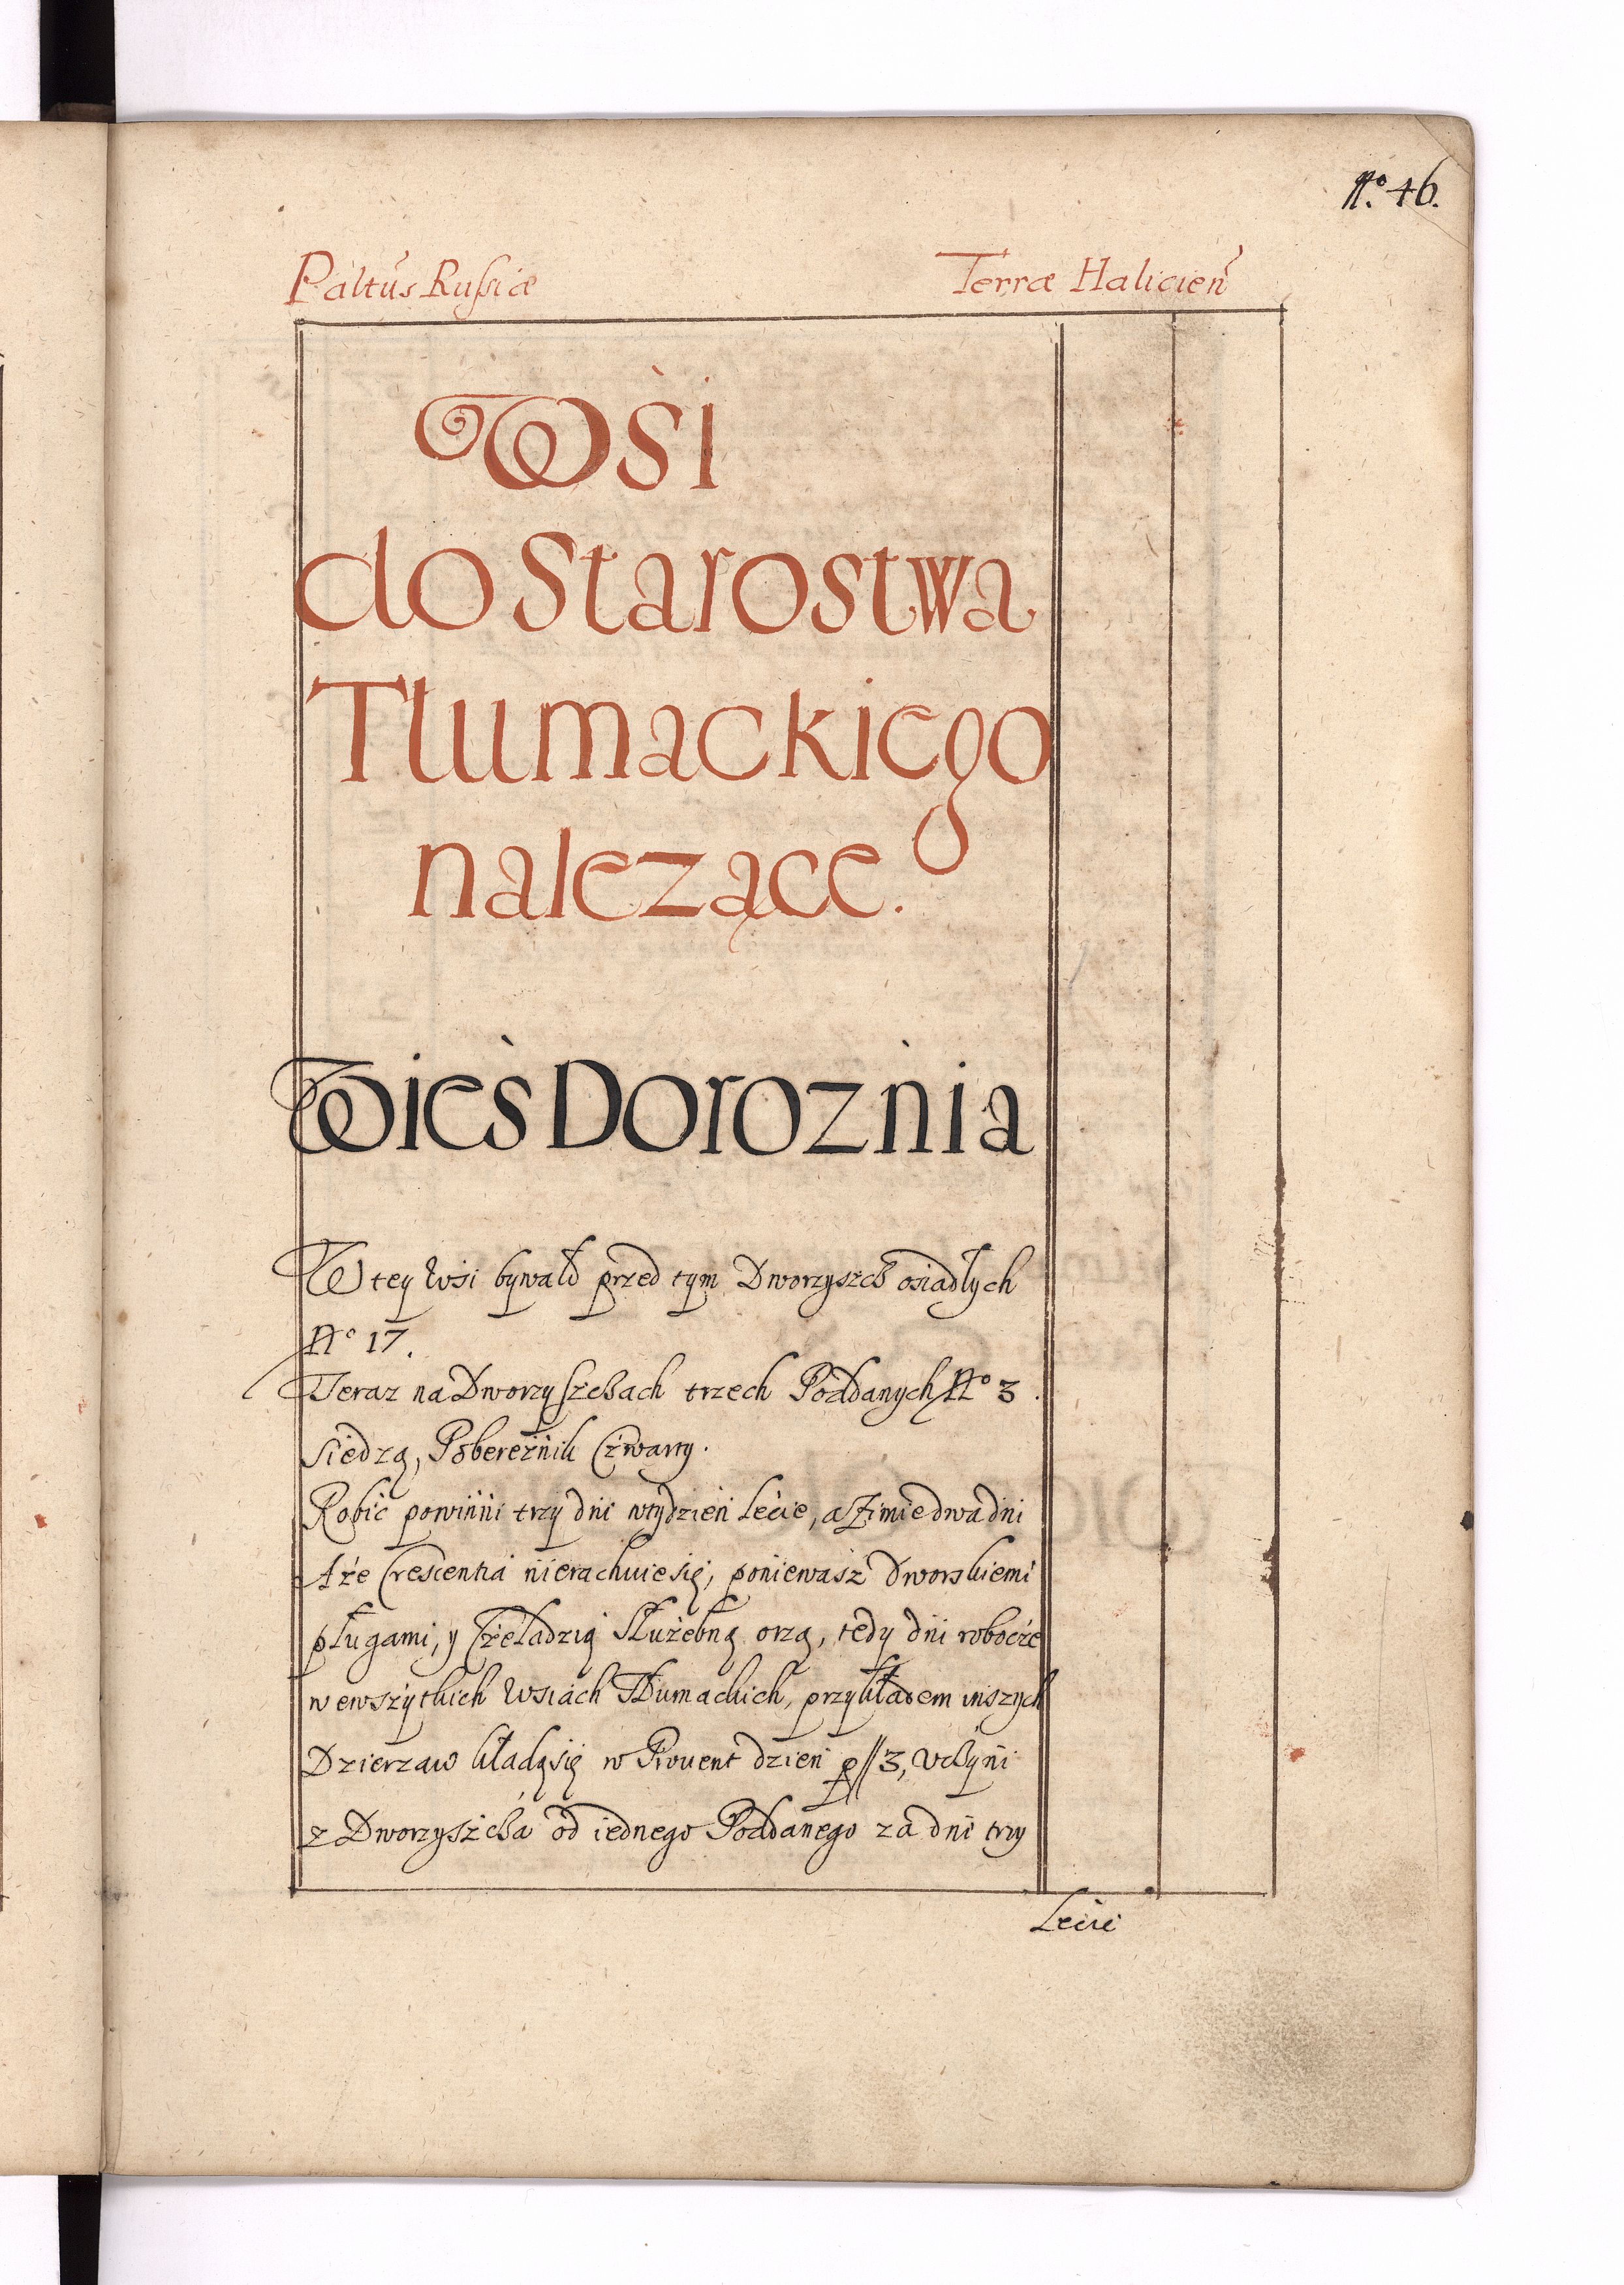 No. 46.
Paltus Russiæ Terræ Halicien
Wsi
do Starostwa
Tlumackiego
nalezące.
Wieś Doroznia
W tey Wsi bywało przed tym Dworzyszcz osiadłych
No 17.
Teraz na Dworzyszczach trzech Poddanych No 3.
siedzą, Pobereznik Czwarty.
Robić powinni trzy dni w tydzień Lecie, a Zimie dwa dni
A że Crescentia nierachuie się, poniewasz Dworskiemi
pługami, y Czeladzią Służebną orzą, tedy dni robocze
w ewszytkich Wsiach Tłumackich, przykładem inszych
Dzierzaw kładą się w Prouent dzień p 3, Vczyni
z Dworzyszcza od iednego Poddanego za dni trzy
Lecie